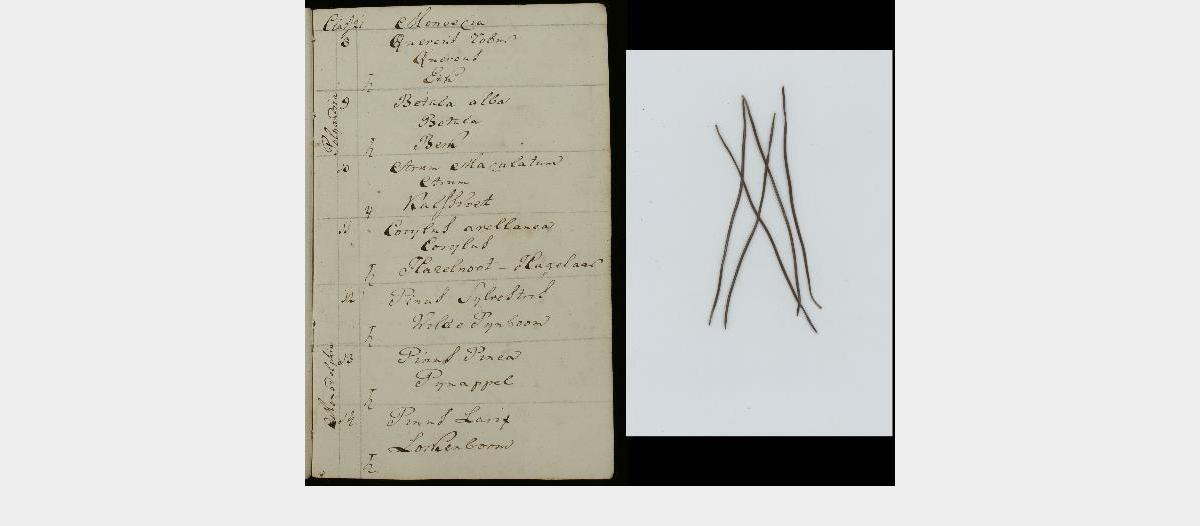 Class 21 Monoecia
8 Quercus Robur
Quercus
Eik
Polyandria
9 Betula alba
Betula
Berk
10 Arum Maculatum
Arum
Kalfsvoet
11 Corylus avellanea
Corylus
Hazelnoot - Hagelaar
12 Pinus Sylvestris
Wilde Pynboom
Monadelphia
13 Pinus Pinea
Pynappel
14 Pinus Larix
Lorkenboom